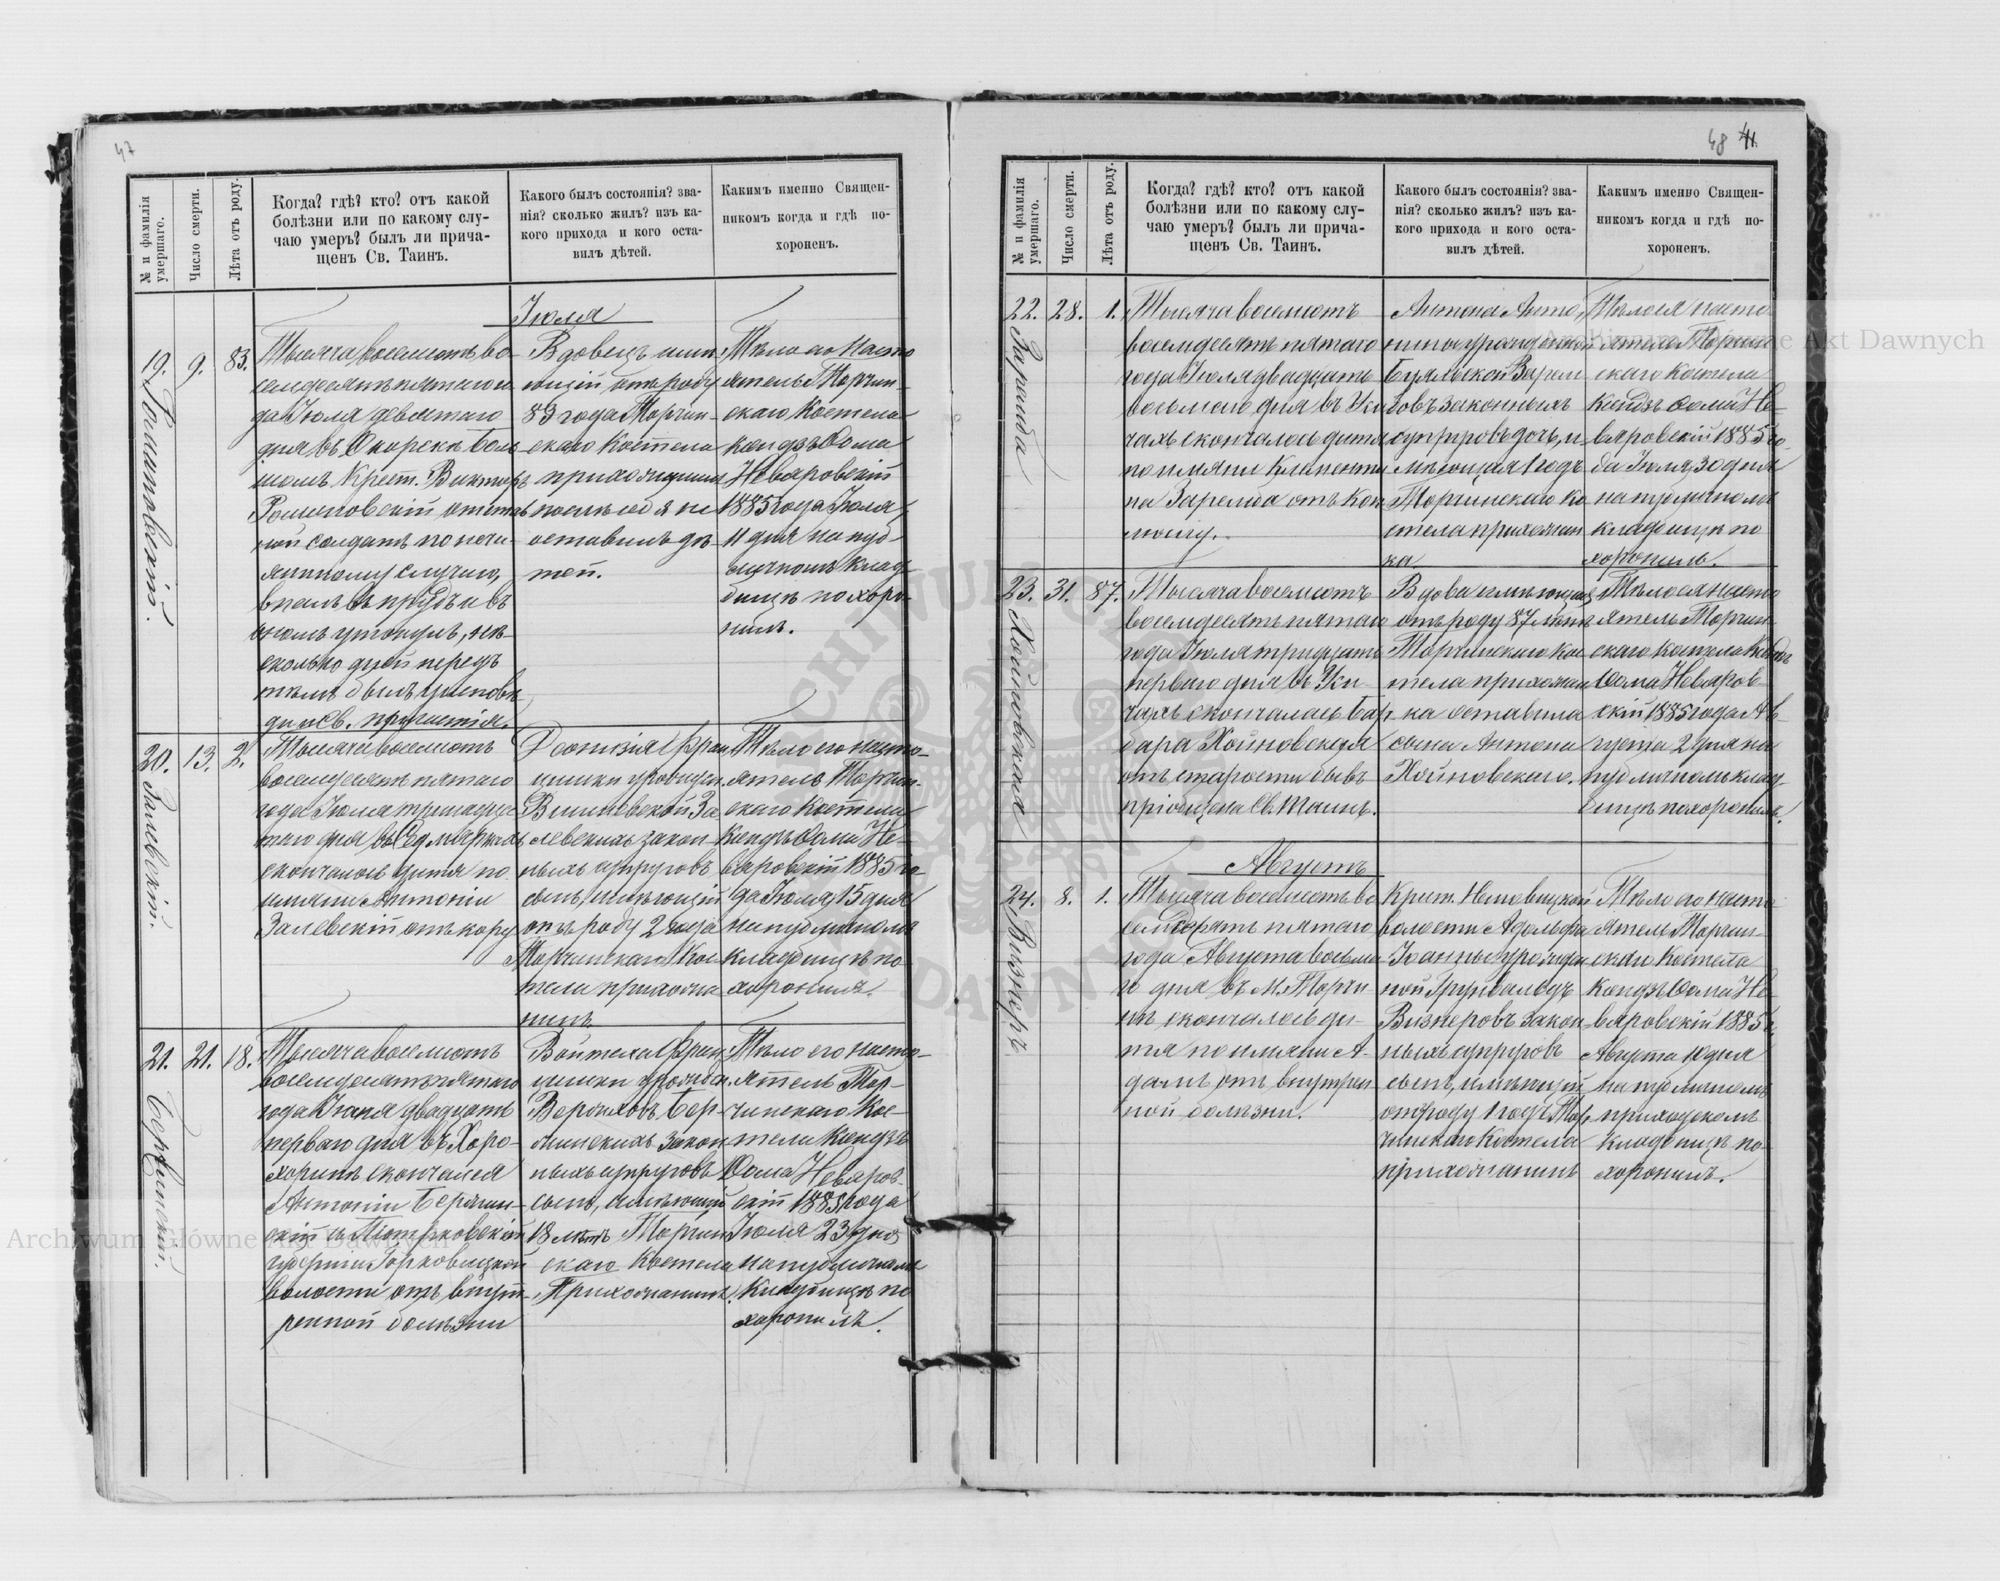 47
№ и фамилія умершаго.
Число смерти.
Лѣта отъ роду.
Когда? гдѣ? кто? отъ какой
болѣзни или по какому слу-
чаю умеръ? былъ ли прича-
щенъ Св. Таинъ.
Какого былъ состоянія? зва-
нія? сколько жилъ? изъ ка-
кого прихода и кого оста-
вилъ дѣтей.
Каким именно Священ-
никомъ когда и гдѣ по-
хороненъ.
Іюля
19.
9.
83.
Тысяча восемьсотъ во-
семдесятъ пятаго го
да Іюля девятаго
дня въ Скорскѣ Боль
шомъ Крест. Викторъ
отстав
ной солдатъ по неча-
янному случаю,
впалъ въ прудъ и въ
ономъ утонулъ, нѣ-
сколько дней передъ
тѣмъ былъ у исповѣ
ди и Св. причастія.
Вдовецъ имѣ
ющій отъ роду
83 года Торчин-
скаго Костела
прихожанинъ
послѣ себя не
оставилъ дѣ-
тей.
Тѣло его Насто
ятель Торчин-
скаго Костела
Ксендзъ Ѳома
Невяровскій
1885 года Іюля
11 дня на пуб
личномъ клад
бищѣ похоро-
нилъ.
20. Залевскій.
13.
2.
Тысяча восемьсотъ
восемдесятъ пятаго
года Іюля тринадца
таго дня въ Седмяркахъ
скончалось дитя по
имяни Антоній
Залевскій отъ кору
Діонизія Фран
цишки урожден.
Вишневской За
левскихъ закон
ныхъ супруговъ
сынъ, имѣющій
отъ роду 2 года
Торчинскаго Кос
тела прихожа
нинъ.
Тѣло его насто-
ятель Торчин-
скаго Костела
Ксендзъ Ѳома Не-
вяровскій 1885 го-
да Іюля 15 дня
на публичномъ
кладбищѣ по-
хоронилъ.
21.
21.
18.
Тысяча восемьсотъ
восемдесятъ пятаго
года Іюля двадцать
перваго дня въ Хоро-
хоринѣ скончался
Антоній
скій съ Піотрковской
губерніи Горковицкой
волости отъ внут
ренной болѣзни
Войтеха Фран
цишки урожден.
закон
ныхъ супруговъ
сынъ, имѣющій
18 лѣтъ Торчин
скаго Костела
Прихожанинъ.
Тѣло его насто-
ятель Тор-
чинскаго Кос-
тела Ксендзъ
Ѳома Невяров-
скій 1885 года
Іюля 23 дня
на публичномъ
Кладбищѣ по
хоронилъ.
48
№ и фамилія умершаго.
Число смерти.
Лѣта отъ роду.
Когда? гдѣ? кто? отъ какой
болѣзни или по какому слу-
чаю умеръ? былъ ли прича-
щенъ Св. Таинъ.
Какого былъ состоянія? зва-
нія? сколько жилъ? изъ ка-
кого прихода и кого оста-
вилъ дѣтей.
Каким именно Священ-
никомъ когда и гдѣ по-
хороненъ.
22. Заремба
28.
1.
Тысяча восемьсотъ
восемдесятъ пятаго
года Іюля двадцать
восьмого дня въ Уси
чахъ скончалось дитя
по имяни Клименти
на Заремба отъ кок
люшу.
Антона Анто
нины урожденной
Заремб
овъ законныхъ
супруговъ дочь, и
мѣющая 1 годъ
Торчинскаго Ко
стела прихожан
ка
Тѣло ея насто
ятель Торчин
скаго Костела
Ксендзъ Ѳома Не-
вяровскій 1885 го-
да Іюля 30 дня
на публичномъ
кладбищѣ по
хоронилъ.
23. Хойновская
31.
87.
Тысяча восемьсотъ
восемдесятъ пятаго
года Іюля тридцать
перваго дня въ Уси-
чахъ скончалась Бар
бара Хойновская
отъ старости бывъ
пріобщена Св. Таинъ.
Вдова имѣющая
отъ роду 87 лѣтъ
Торчинскаго Кос
тела прихожан
ка оставила
сына Антона
Хойновскаго.
Тѣло ея насто
ятель Торчин-
скаго Костела Ксендзъ
Ѳома Невяров-
скій 1885 года Ав-
густа 2 дня на
публичномъ клад
бищѣ похоронилъ.
Августъ
24. Визнеръ
8.
1.
Тысяча восемьсотъ во
семдесятъ пятаго
года Августа восьма
го дня въ М. Торчи-
нѣ скончалось ди-
тя по имяни А-
дамъ отъ внутрен
ной болѣзни.
Крест.
волости Адольфа
Іоанны урожден
ной Грунвальдъ
Визнеровъ закон
ныхъ супруговъ
сынъ, имѣющій
отъ роду 1 годъ Тор
чинскаго Костела
прихожанинъ
Тѣло его насто-
ятель Торчин-
скаго Костела
Ксендзъ Ѳома Не-
вяровскій 1885 г.
Августа 10 дня
на публичномъ
приходскомъ
кладбищѣ по-
хоронилъ.
Archiwum Główne Akt Dawnych
Archiwum Główne Akt Dawnych